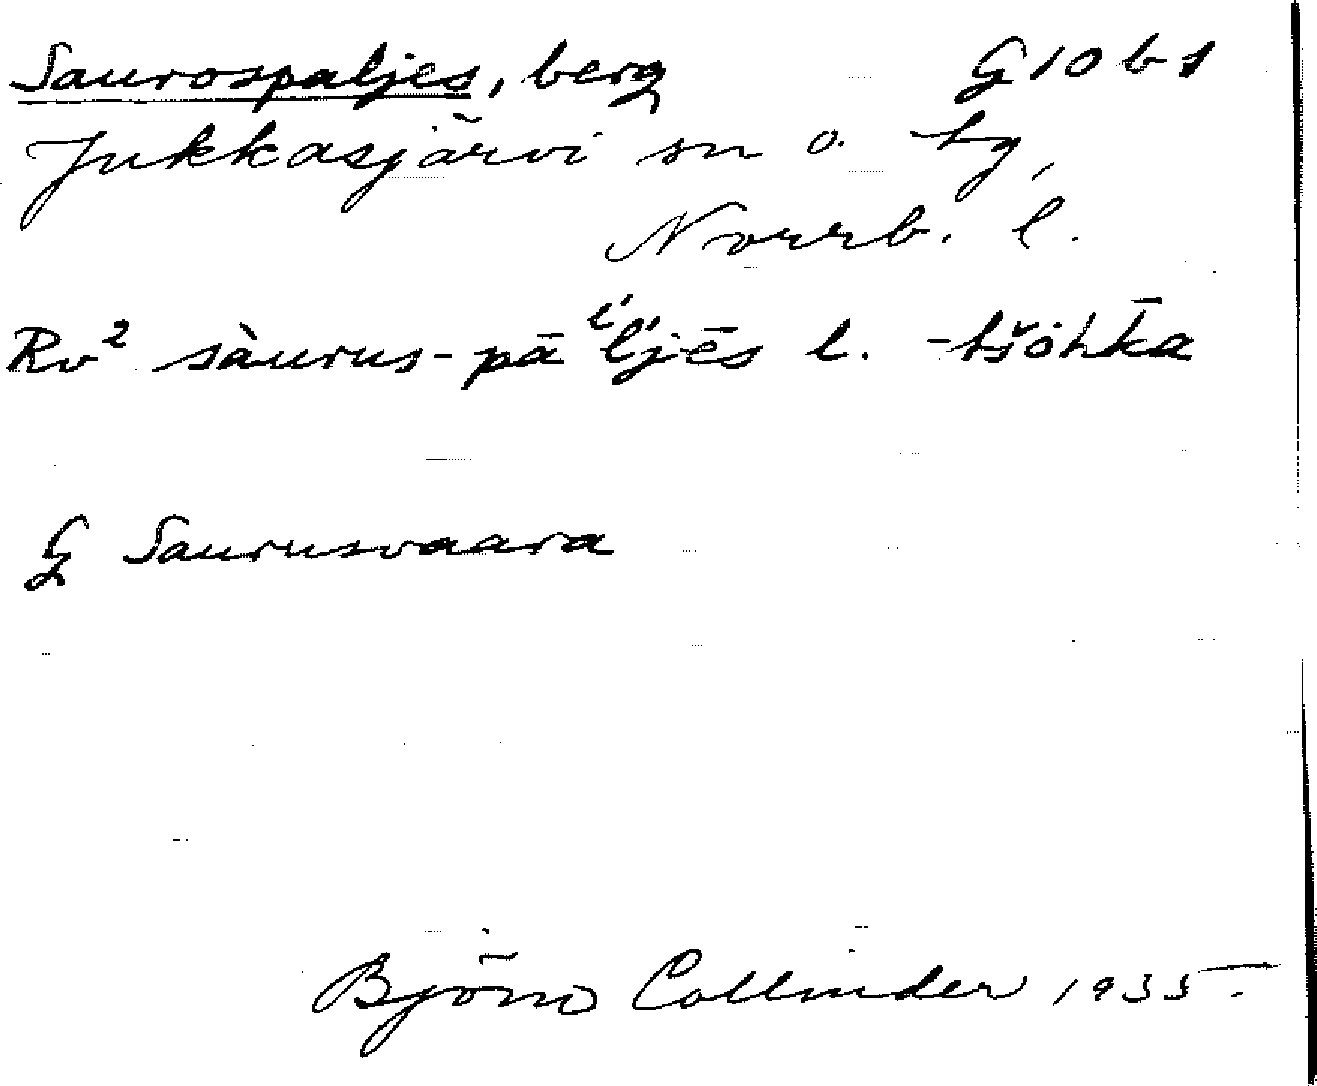 Saurospaljes, berg G 10 b 1
Jukkasjärvi sn o. tg,
Norrb. l.
Rv² sàurus-pā l. -tšȯhka
G Saurusvaara
Björn Collinder 1935.